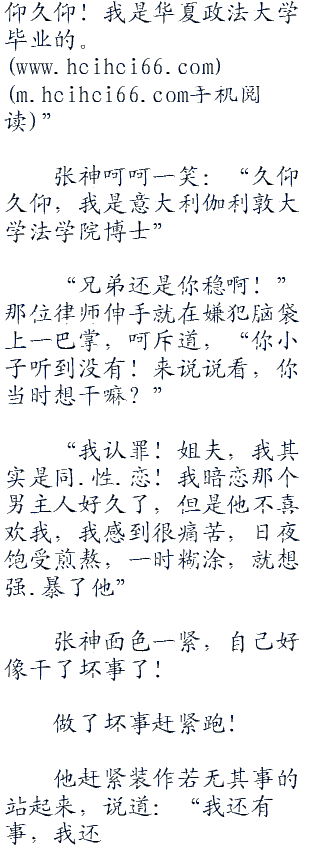 仰久仰！我是华夏政法大学
毕业的。
(www.hcihci66.com)
(m.hcihci66.com手机阅
读)”
张神呵呵一笑：“久仰
久仰，我是意大利伽利敦大
学法学院博士”
“兄弟还是你稳啊！”
那位律师伸手就在嫌犯脑袋
上一巴掌，呵斥道，“你小
子听到没有！来说说看，你
当时想干嘛？”
“我认罪！姐夫，我其
实是同.性.恋！我暗恋那个
男主人好久了，但是他不喜
欢我，我感到很痛苦，日夜
饱受煎熬，一时糊涂，就想
强.暴了他”
张神面色一紧，自己好
像干了坏事了！
做了坏事赶紧跑！
他赶紧装作若无其事的
站起来，说道：“我还有
事，我还